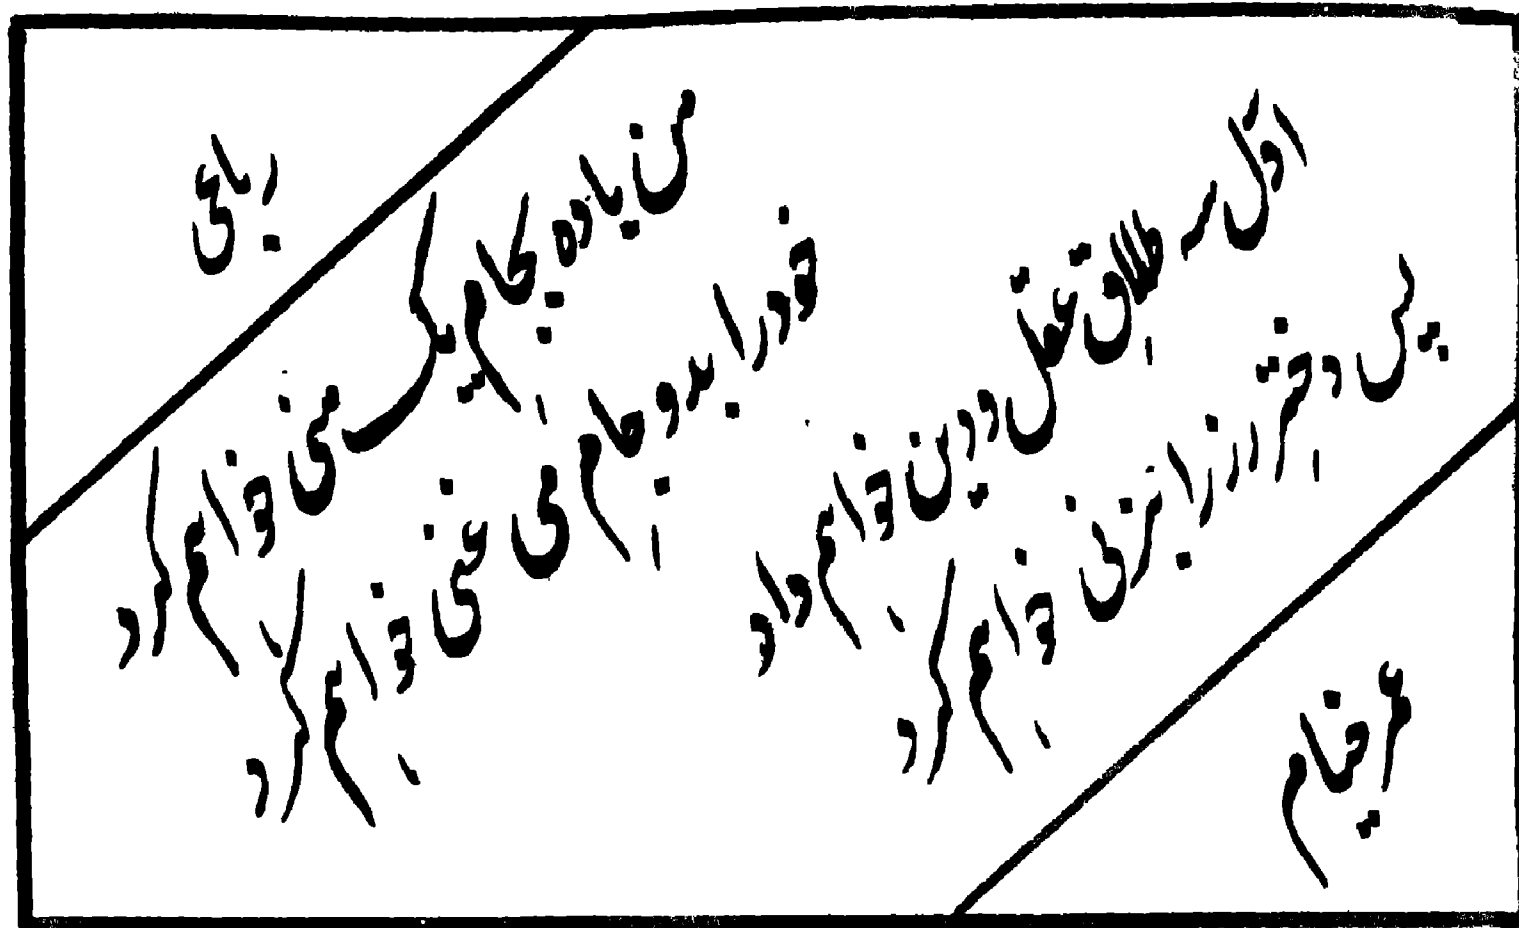 رباعی
من باده بجام یک منی خواهم کرد
خود را بدو جام می غنی خواهم کرد
اوّل سه طلاق عقل و دین خواهم داد
پس دختر رز را بزنی خواهم کرد
عمر خیام